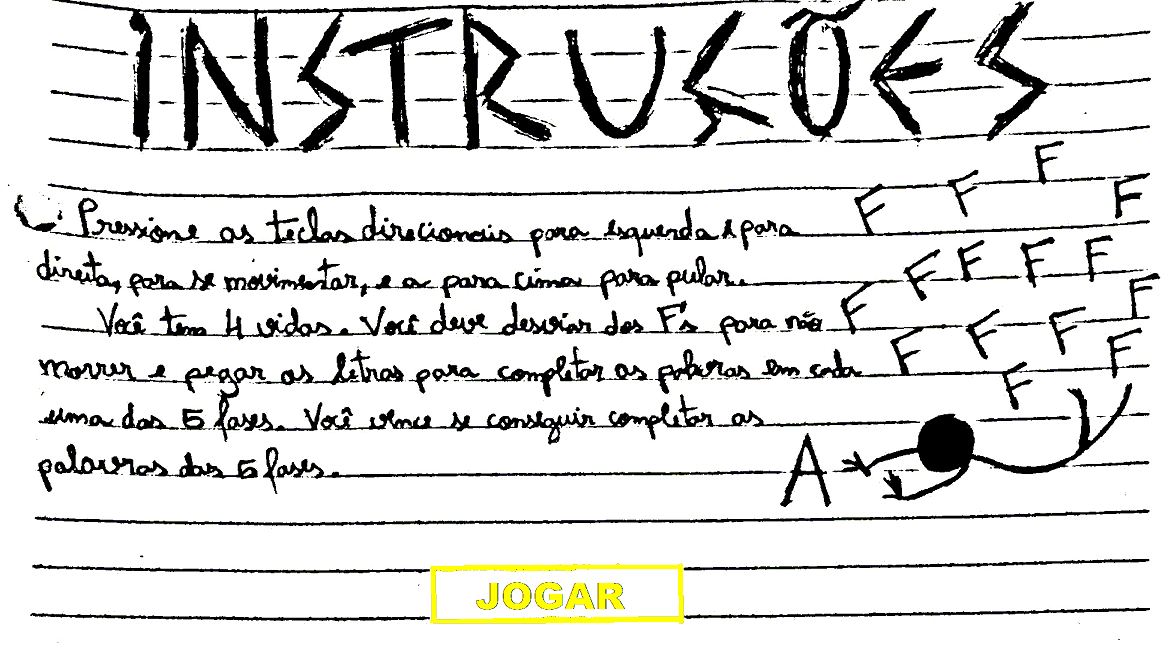 INSTRUÇÕES
Pressione as teclas direcionais para esquerda e para
direita, para se movimentar, e a para cima para pular.
Você tem 4 vidas. Você deve desviar dos F's para não
morrer e pegar as letras para completar as palavras em cada
uma das 5 fases. Você vence se conseguir completar as
palavras das 5 fases.
F F F F
F F F F
F F F F F
F F
A
JOGAR